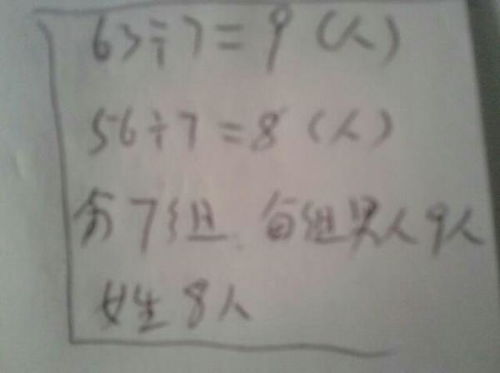 63÷7=9(人)
56÷7=8(人)
分7组.每组男人9人
女生8人